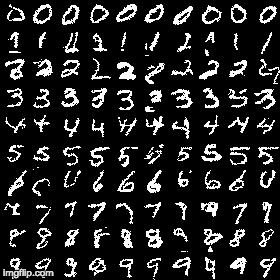 0 0 0 0 0 0 0 0 0 0
1 1 2 1 1 2 1 1 1
2 2 2 2 2 2 2 2 2
3 3 3 3 3 3 3 3 3 3
4 4 4 4 4 4 4 4 4 4
5 5 5 5 5 5 5 5 5 5
6 0 6 6 6 6 6 6 0
7 7 7 7 7 7 7 9 7 7
8 8 8 8 8 8 8 8 8
9 9 9 9 9 9 9 9 9
imgflip.com